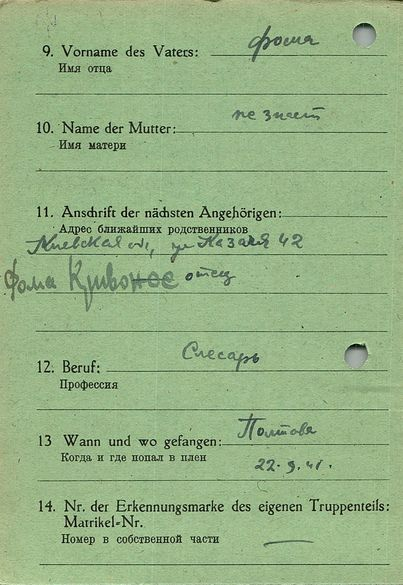 9. Vorname des Vaters: фома
Имя отца
10. Name der Mutter: не знает
Имя матери
11. Anschrift der nächsten Angehörigen:
Адрес ближайших родственников
Киевская об, 42
Фома Кривонос отец
12. Beruf: Слесарь
Профессия
13 Wann und wo gefangen: Полтава
Когда и где попал в плен
22.9.41.
14. Nr. der Erkennungsmarke des eigenen Truppenteils:
Matrikel-Nr.
Номер в собственной части —